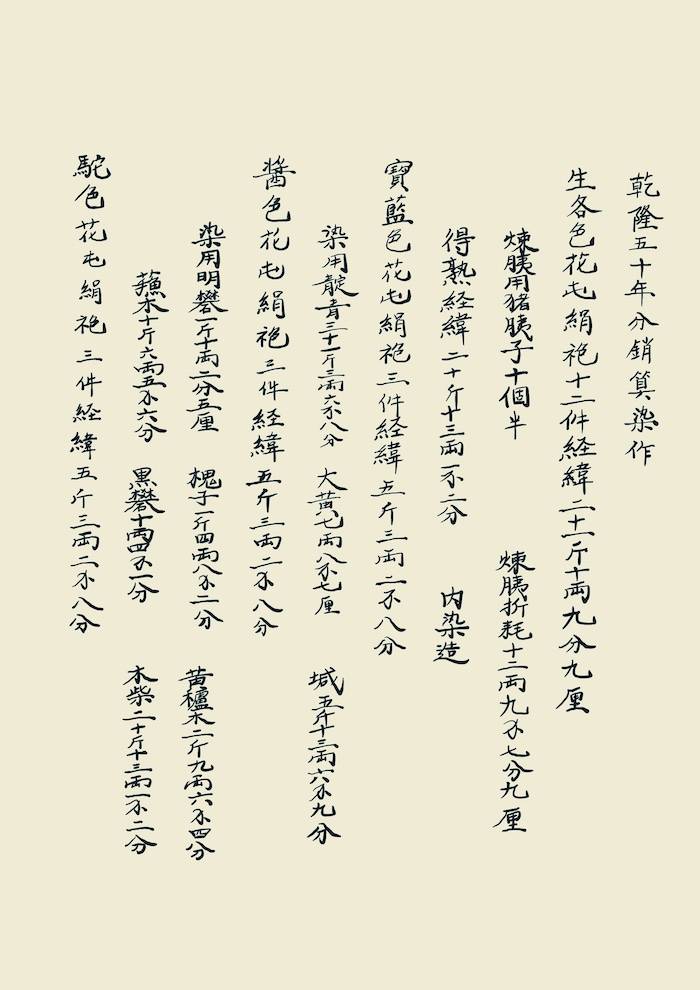 乾隆五十年分銷算染作
生各色花屯絹袍十二件経緯二十一斤十両九分九厘
煉胰用猪胰子十個半 煉胰折耗十二両九不七分九厘
得熟経緯二十斤十三両一不二分 内染造
寶藍色花屯絹袍三件経緯五斤三両二不八分
染用靛青三十一斤三両六不八分 大黄七両八不七厘 堿五斤十三両六不九分
醬色花屯絹袍三件経緯五斤三両二不八分
染用明礬一斤十両二分五厘 槐子一斤四両八不二分 黄櫨木二斤九両六不四分
蘓木十斤六両五不六分 黒礬十両四不一分 木柴二十斤十三両一不二分
駝色花屯絹袍三件経緯五斤三両二不八分